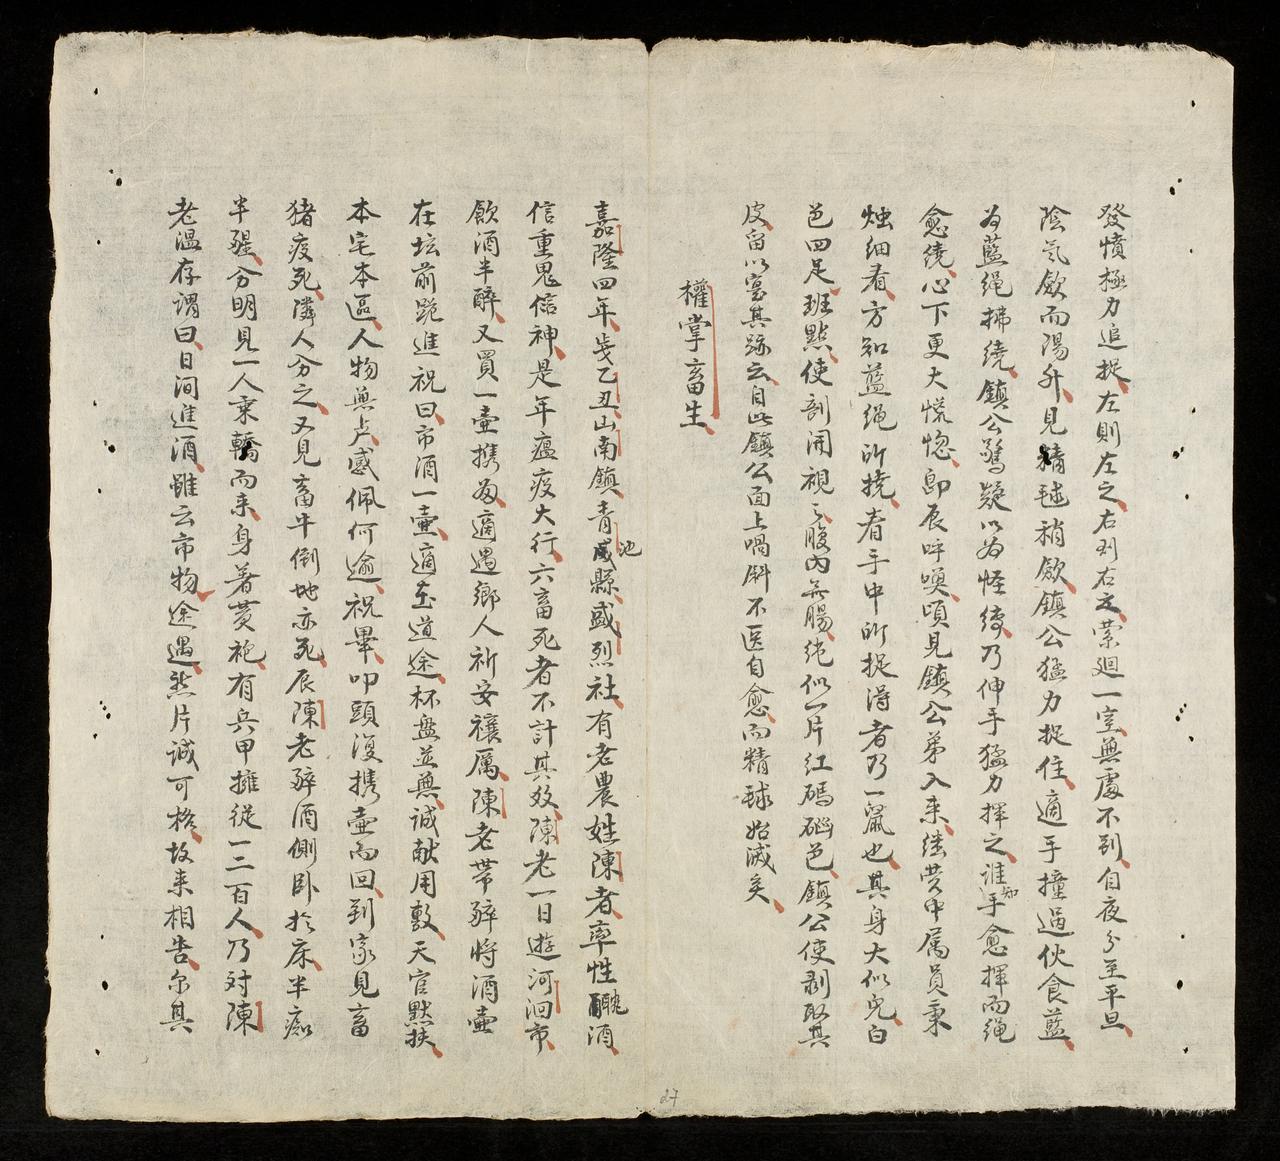 發憤極力追捉左則左之右則右之縈廻一室無處不到自夜分至平旦
陰氣斂而陽升見精毬稍斂鎮公猛力捉住適手撞過伙食藍
為藍繩拂繞鎮公驚疑以為怪縛乃伸手猛力揮之誰知手愈揮而繩
愈繞心下更大慌惚即辰呼喚頃見鎮公弟入來継营中属員秉
烛细看方知藍绳所撓看手中所捉得者乃一鼠也其身大似兜白
色四足班點使剖開視之腹內無腸純似一片红碼碯色鎮公使剥取其
皮留以窒其跡云自此鎮公面上喎斜不医自愈而精毬始滅矣
權掌畜生
嘉隆四年歲乙丑山南鎮青池縣盛烈社有老農姓陳者率性酖酒
信重鬼信神是年瘟疫大行六畜死者不計其数陳老一日遊河洄市
飲酒半醉又買一壷携為適遇鄉人祈安禳厲陳老帶醉将酒壷
在坛前跪進祝曰市酒一壷適在道途杯盘並無诚献用敷天官默扶
本宅本區人物無虞感佩何逾祝畢叩頭復携壷而回到家見畜
猪疫死隣人分之又見畜牛倒地亦死辰陳老醉酒側卧於床半痴
半醒分明見一人乘轎而来身著黄袍有兵甲擁從一二百人乃对陳
老温存謂曰日间進酒雖云市物途遇然片诚可格故来相告尔其
27